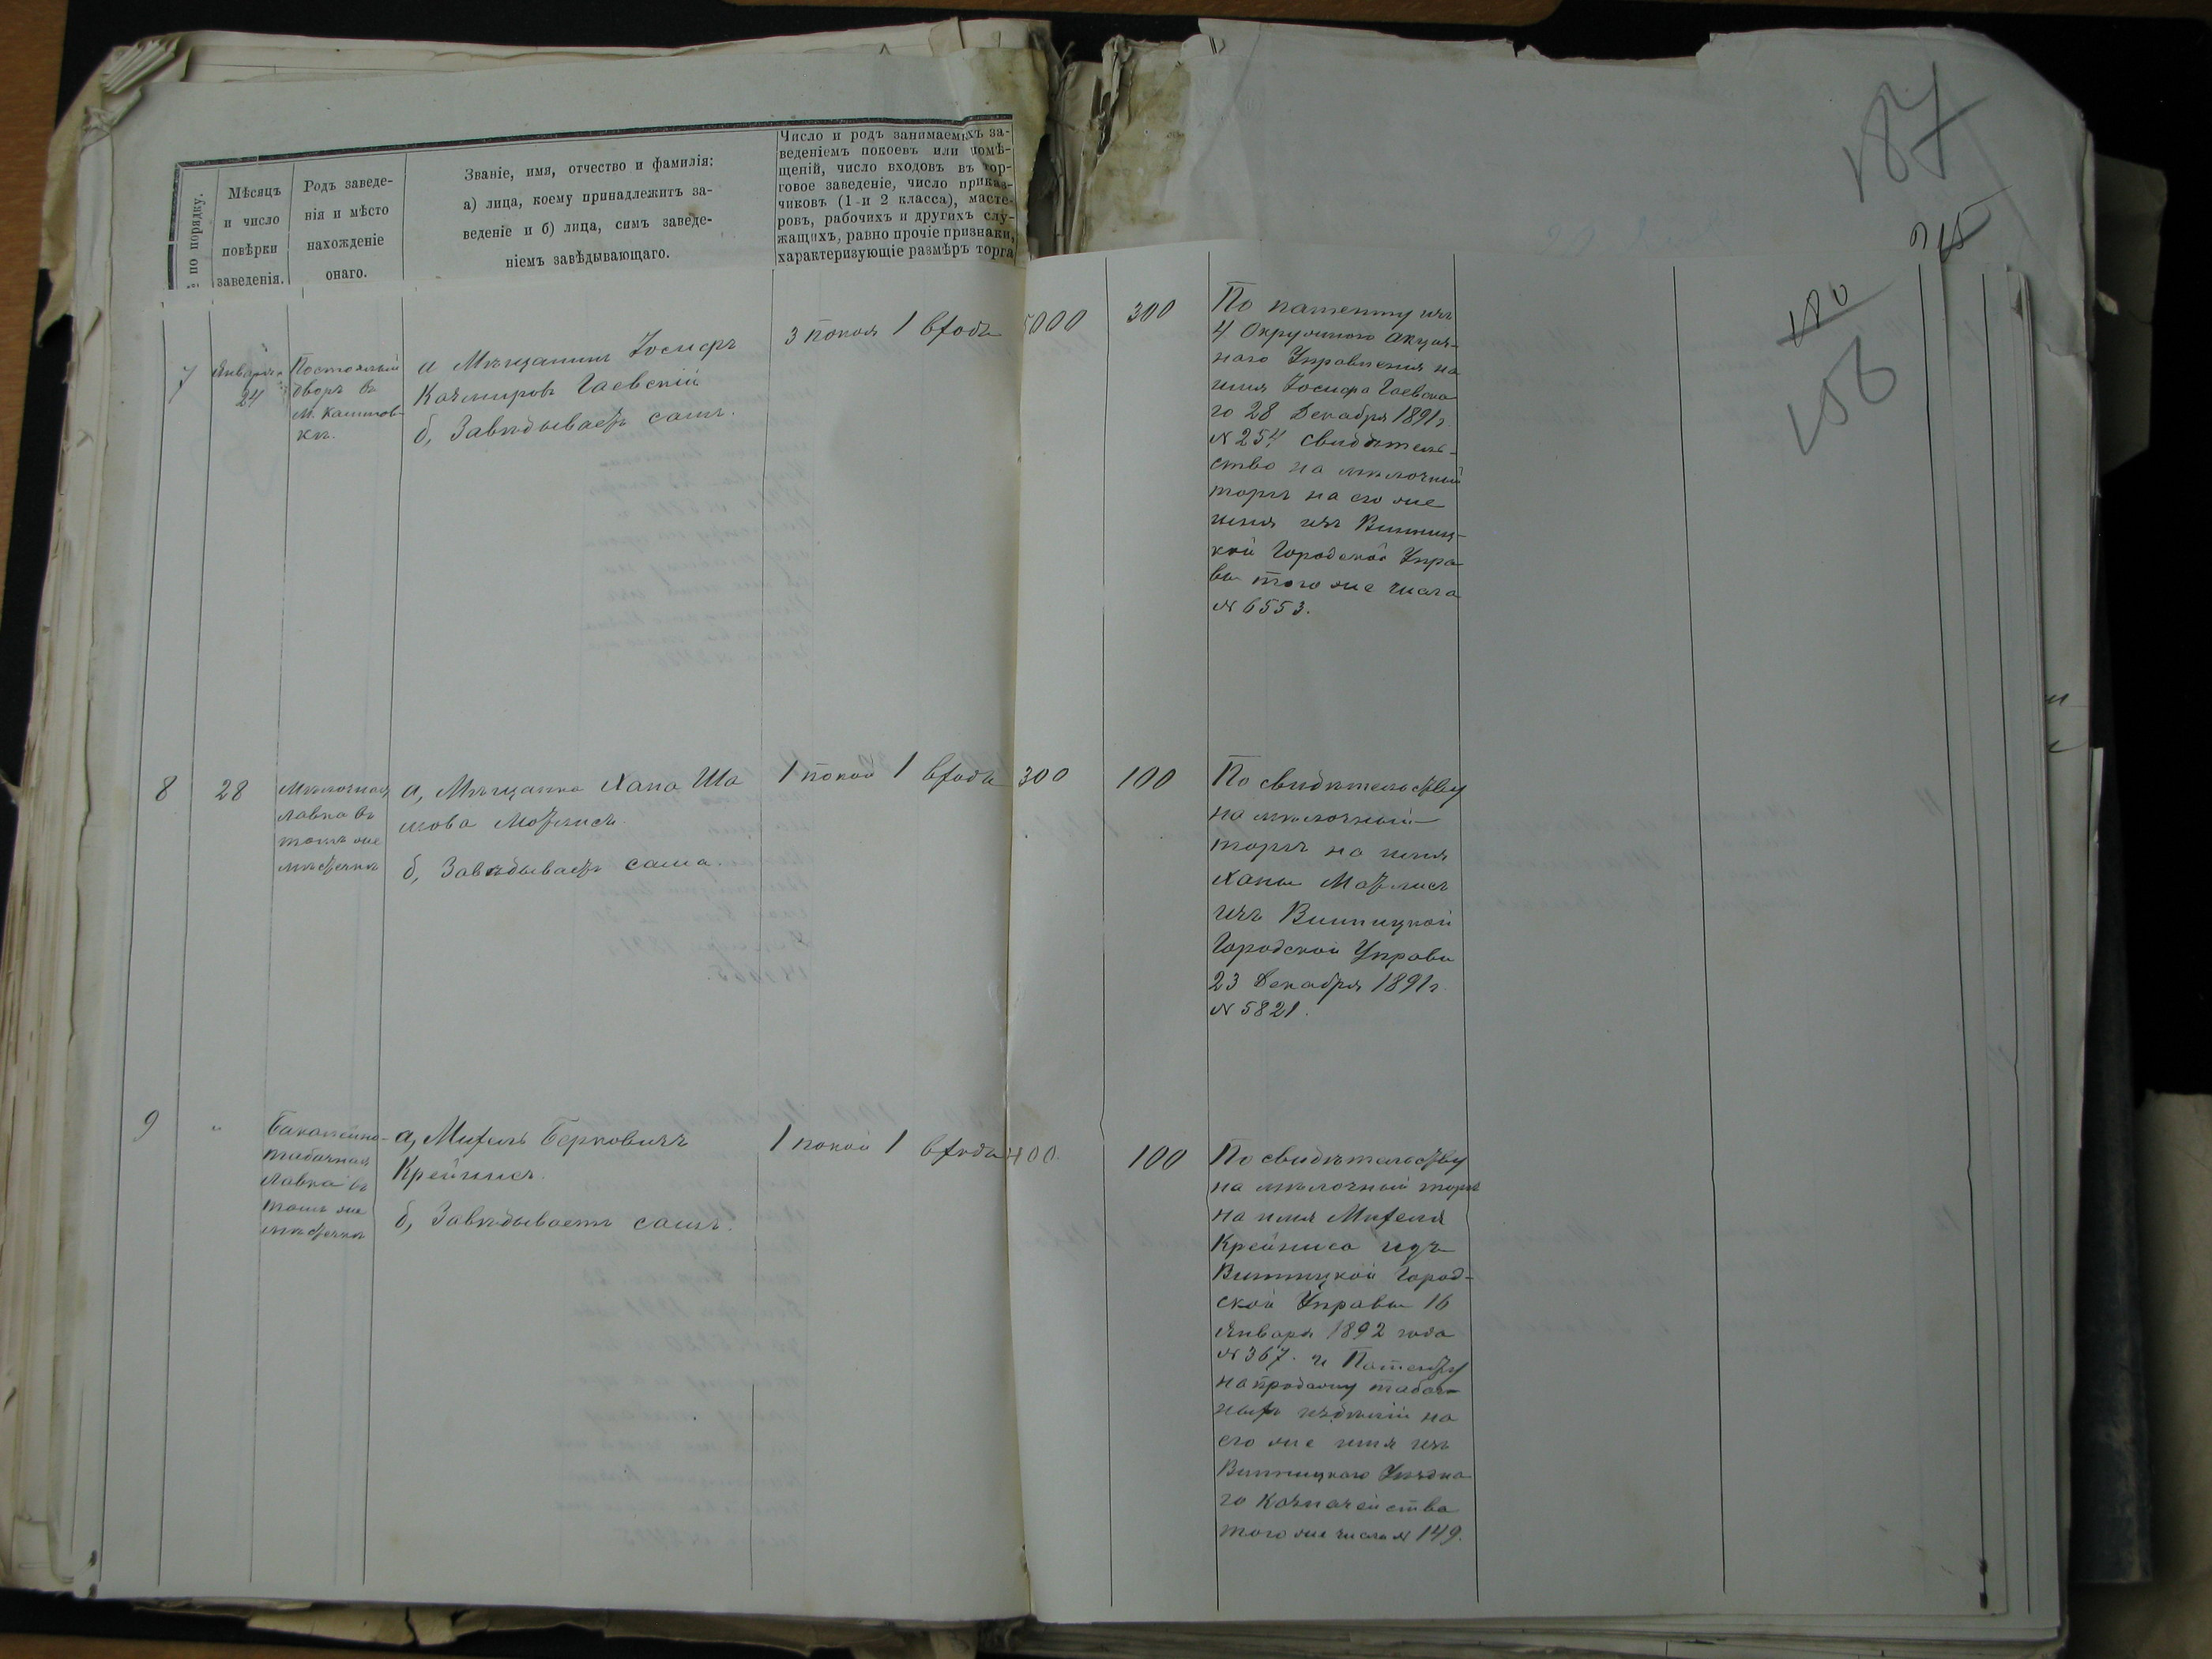 № по порядку.
Мѣсяцъ
и число
повѣрки
заведенія.
Родъ заведе-
нія и мѣсто
нахожденіе
онаго.
Званіе, имя, отчество и фамилія:
а) лица, коему принадлежитъ за-
веденіе и б) лица, симъ заведе-
ніемъ завѣдывающаго.
Число и родъ занимаемыхъ за-
веденіемъ покоевъ или помѣ-
щеній, число входовъ въ тор-
говое заведеніе, число приказ-
чиковъ (1-и 2 класса), масте-
ровъ, рабочихъ и другихъ слу-
жащихъ, равно прочіе признаки,
характеризующіе размѣръ торга
187
180
158
7
Января
24
Постоялый
дворъ въ
м.
а Мѣщанинъ Іосифъ
Казміровъ Гаевскій
б, Завѣдываетъ самъ.
3 покоя 1 входъ
5000
300
По патенту изъ
4 Окружного Акциз-
наго Управленія на
имя Іосифа Гаевска
го 28 Декабря 1891 г.
N 254 свидѣтель-
ство на мѣлочный
торгъ на его же
имя изъ Винниц-
кой Городской Упра
вы того же числа
N 6553.
8
28
Мѣлочная
лавка въ
томъ же
мѣстечкѣ
а, Мѣщанка Хана Ша
мова
б, Завѣдываетъ сама.
1 покой 1 входъ
300
100
По свидѣтельству
на мѣлочный
торгъ на имя
Ханы
изъ Винницкой
Городской Управы
23 Декабря 1891 г.
N 5821.
9
"
Бакалейно-
табачная
лавка въ
томъ же
мѣстечкѣ
а, Михель Берковичъ
Крейнисъ.
б, Завѣдываетъ самъ.
1 покой 1 входъ
400.
100
По свидѣтельству
на мѣлочный торгъ
на имя Михеля
Крейниса изъ
Винницкой Город-
ской Управы 16
Января 1892 года
N 367. и Патенту
на продажу табач
ныхъ издѣлій на
его же имя изъ
Винницкаго Уѣздна
го Казначейства
того же числа N 149.